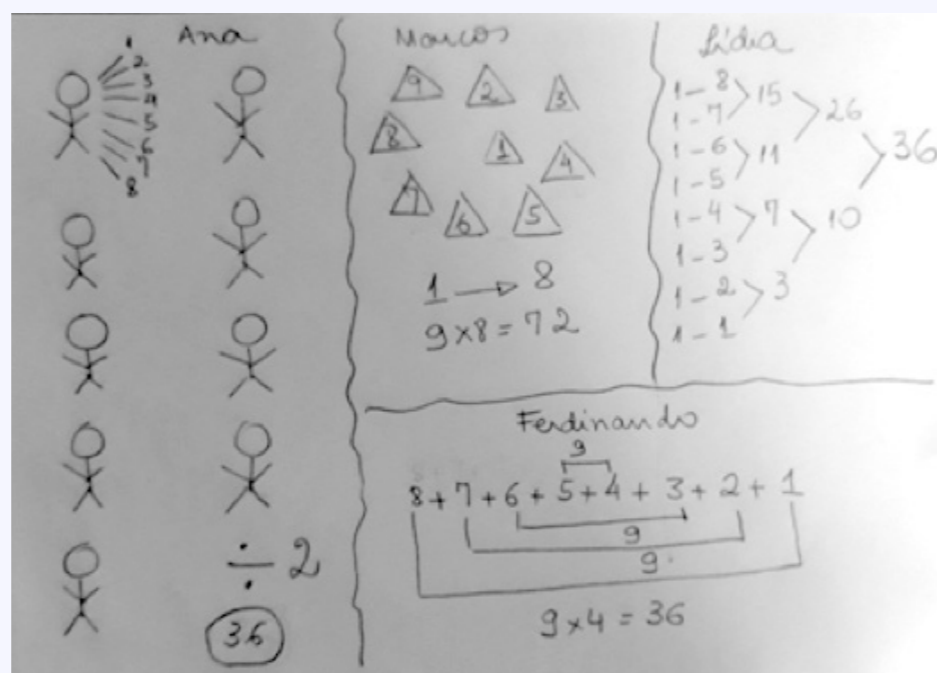 Ana
1
2
3
4
5
6
7
8
÷ 2
36
Marcos
9 2 3
8 1 4
7 6 5
1 → 8
9 x 8 = 72
Lídia
1 - 8
1 - 7
15
1 - 6
1 - 5
11
26
1 - 4
1 - 3
7
1 - 2
1 - 1
3
10
36
Ferdinando
9
8 + 7 + 6 + 5 + 4 + 3 + 2 + 1
9
9
9 x 4 = 36